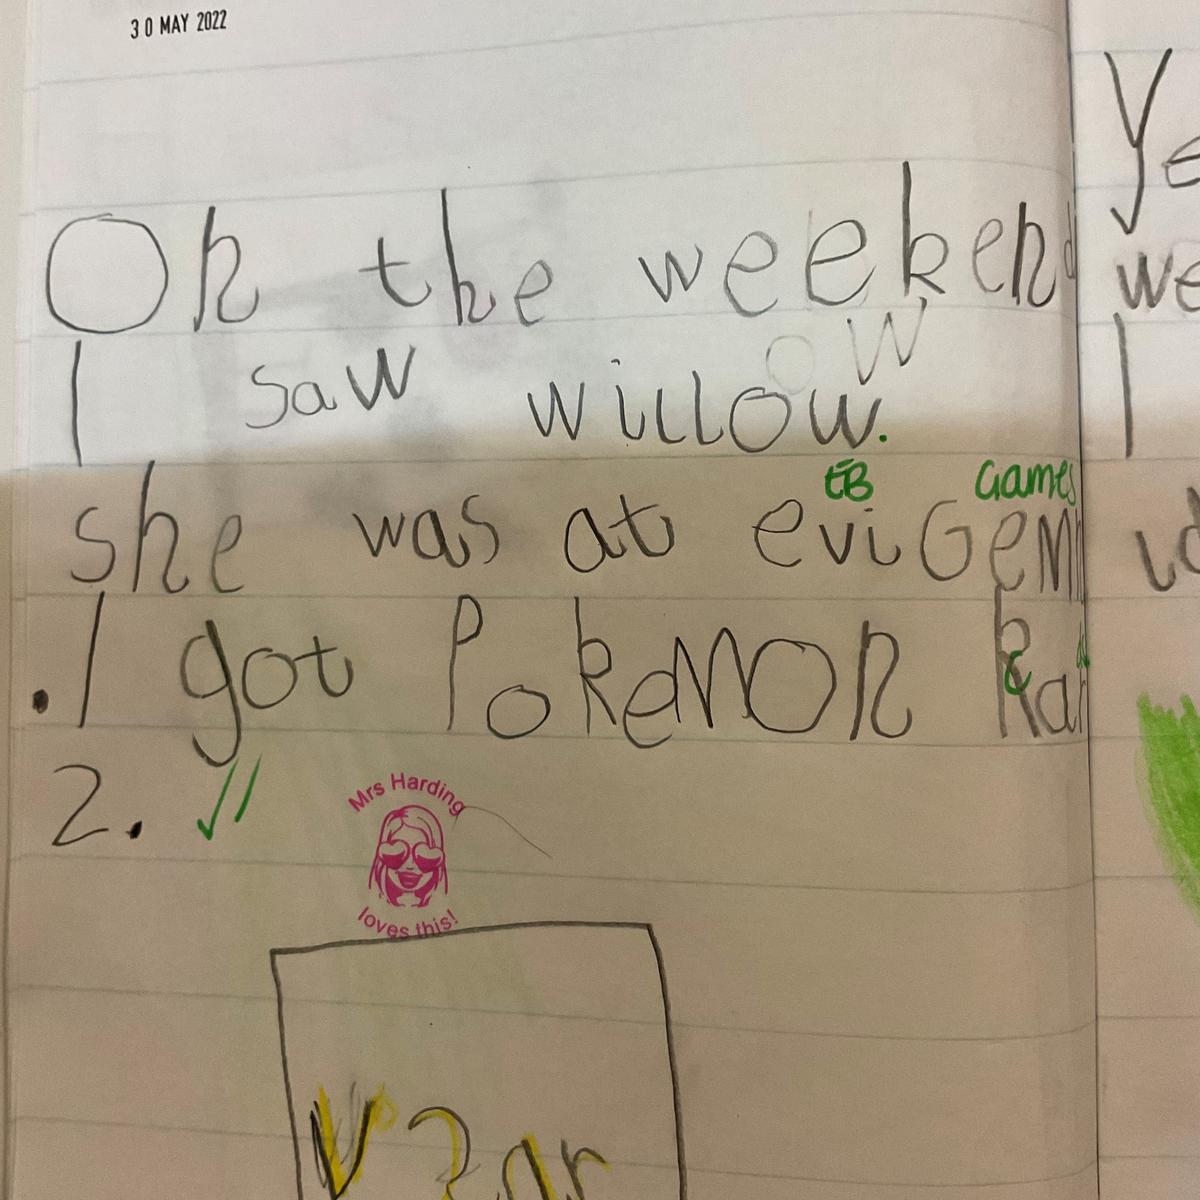 30 MAY 2022
On the weekend
I saw willow.
ow
EB Games
she was at evi Gem
.I got Pokemon Kar
2.
Mrs Harding
loves this!
Ye
we
I